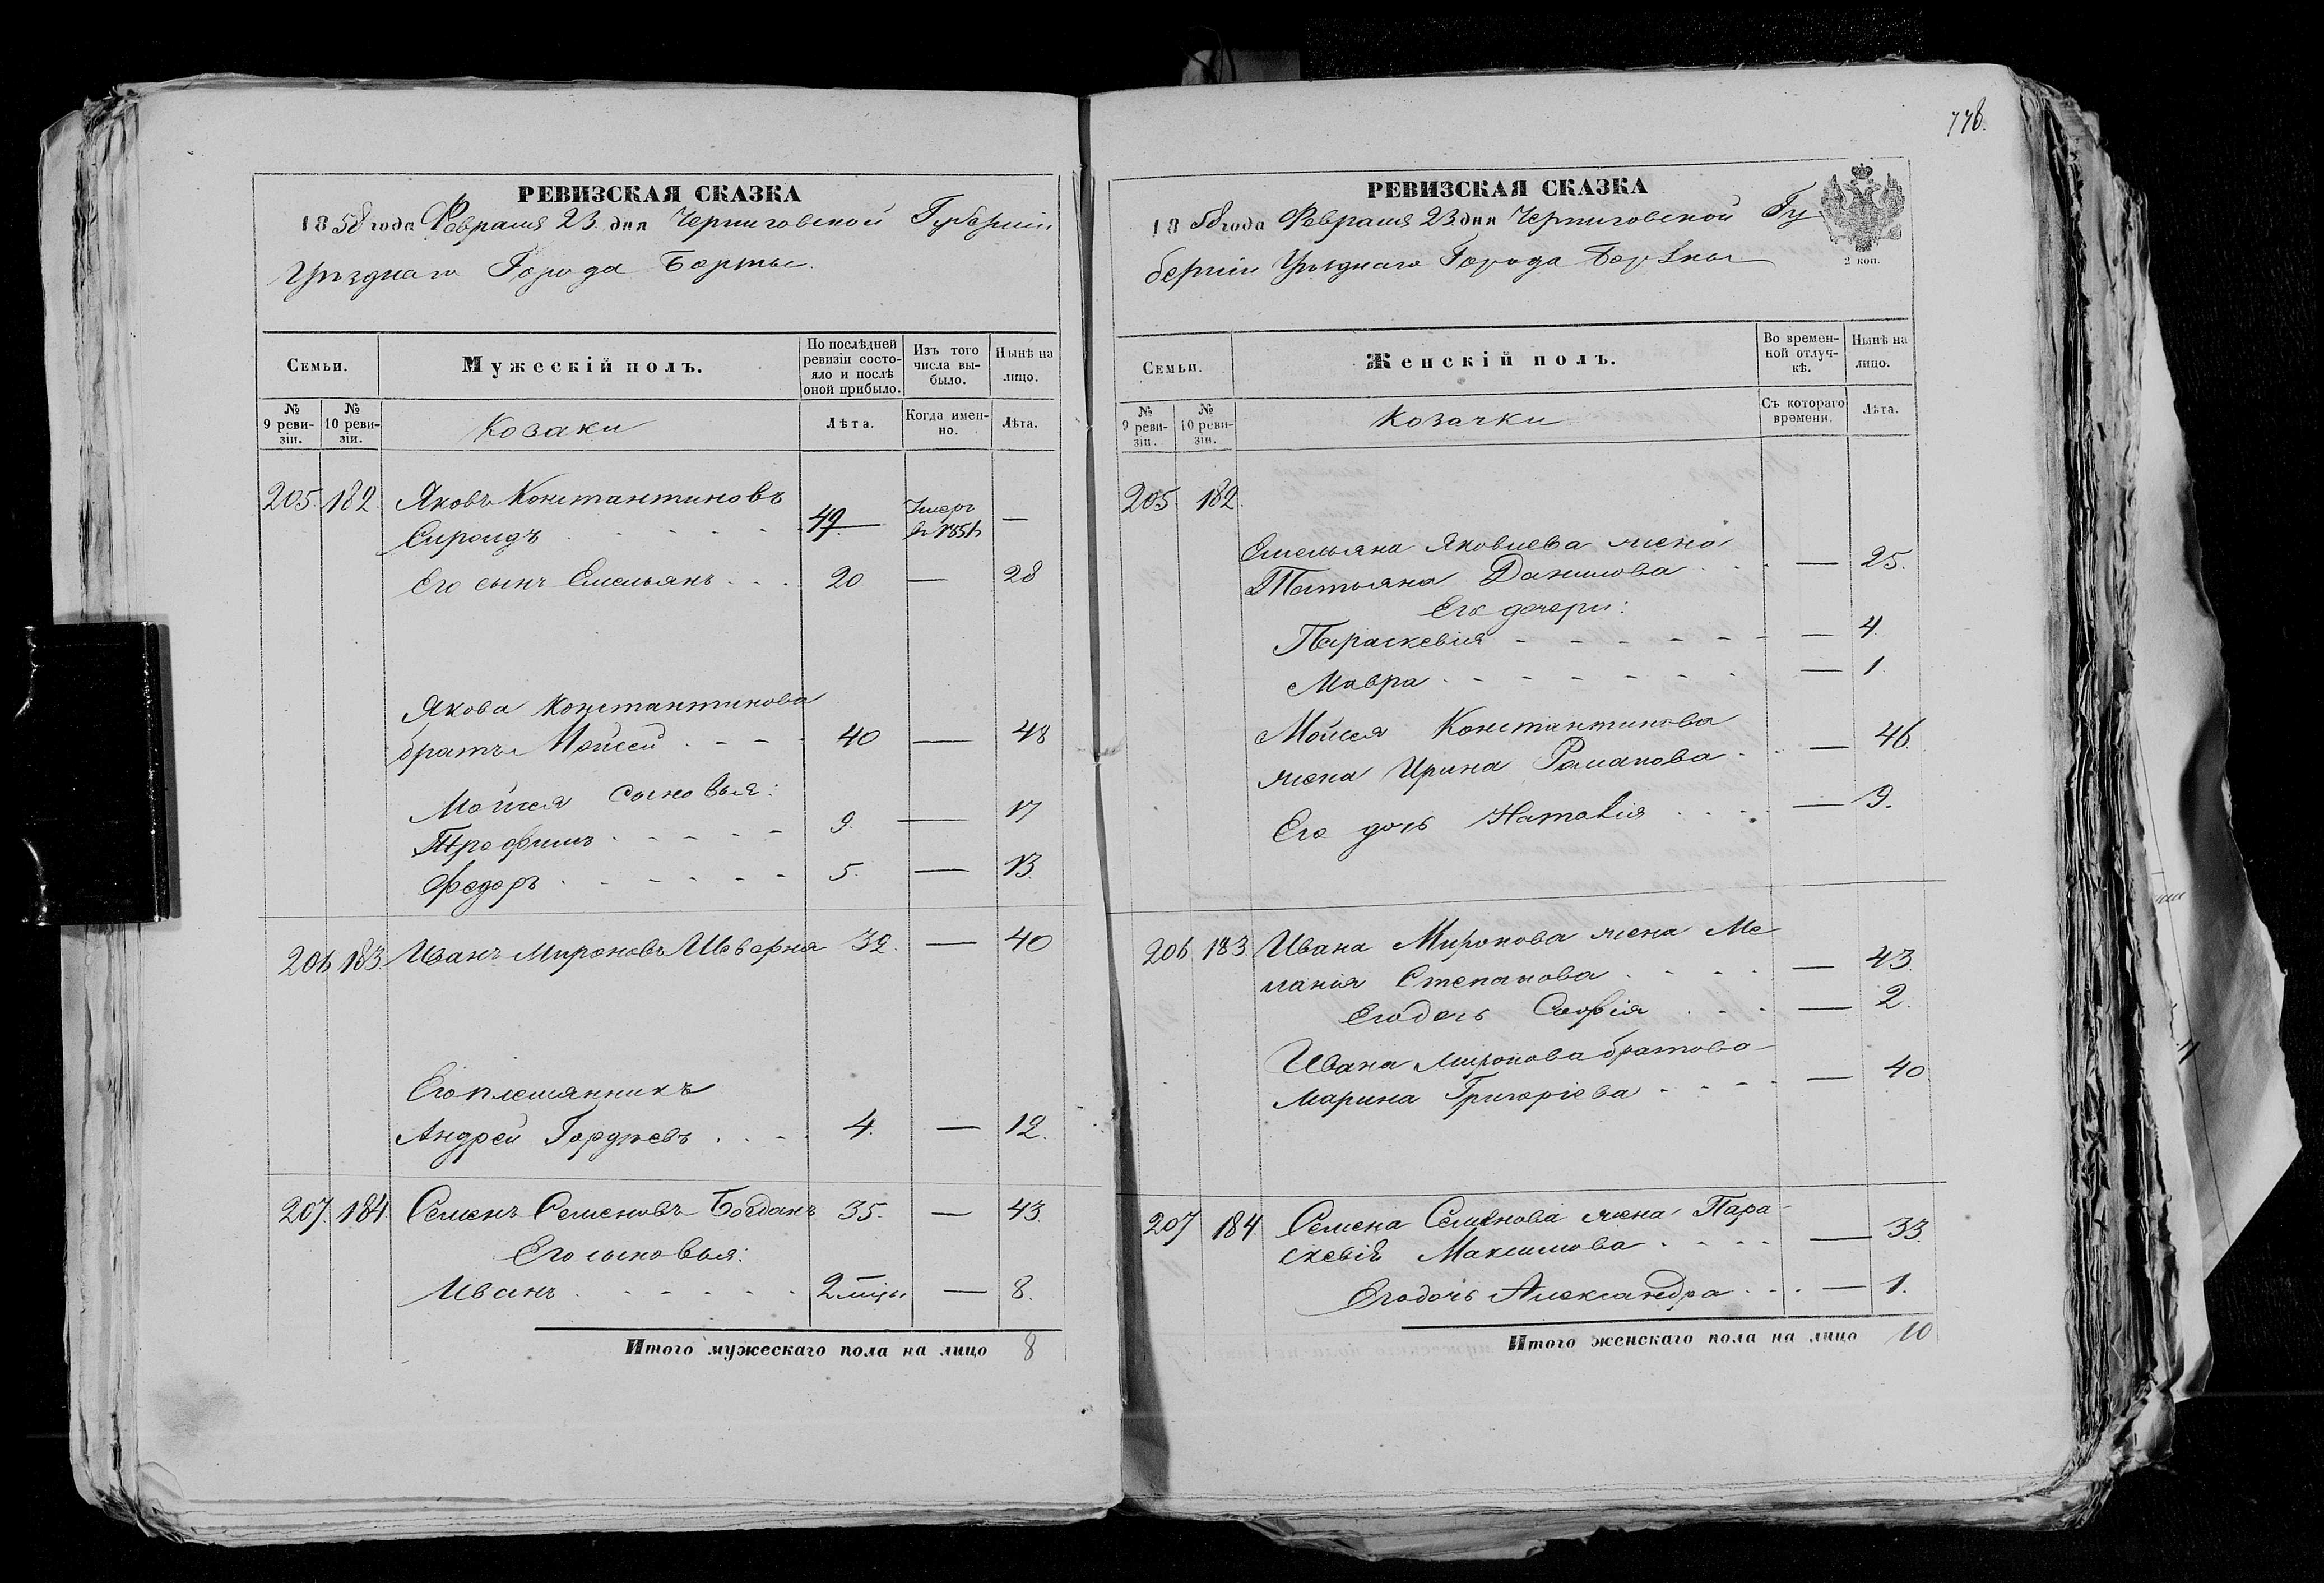 778.
РЕВИЗСКАЯ СКАЗКА
1858 года Февраля 23 дня Черниговской Губерніи
Уѣзднаго Города Борзны.
Семьи.
Мужескій полъ.
По послѣдней ревизіи состояло и послѣ оной прибыло.
Изъ того числа выбыло.
Нынѣ на лицо.
№ 9 ревизіи.
№ 10 ревизіи.
Козаки
Лѣта.
Когда именно.
Лѣта.
205. 182. Яковъ Константиновъ
Сироидъ 49 Умеръ в 1851 —
Его сынъ Емельянъ 20 — 28
Якова Константинова
братъ Мойсей 40 — 48
Мойсея сыновья:
Трофимъ 9. — 17
Федоръ 5. — 13.
206 183. Иванъ Мироновъ Шеверня 32. — 40
Его племянникъ
Андрей Гордѣевъ 4. — 12.
207. 184. Семенъ Семеновъ Богданъ 35. — 43.
Его сыновья:
Иванъ 2 мцы — 8.
Итого мужескаго пола на лицо 8
РЕВИЗСКАЯ СКАЗКА
1858 года Февраля 23 дня Черниговской Гу
берніи Уѣзднаго Города Борзны
2 коп.
Семьи.
Женскій полъ.
Во временной отлучкѣ.
Нынѣ на лицо.
№ 9 ревизіи.
№ 10 ревизіи.
Козачки
Съ котораго времени.
Лѣта.
205 182.
Емельяна Яковлева жена
Татьяна Данилова — 25.
Его дочери:
Параскевія — 4.
Мавра — 1.
Мойсея Константинова
жена Ирина Романова — 46.
Его дочь Наталія — 9.
206 183. Ивана Миронова жена Ме
ланія Степанова — 43.
Его дочь Софія — 2.
Ивана Миронова братова
Марина Григоріева — 40
207 184. Семена Семенова жена Пара-
скевія Максимова — 33.
Его дочь Александра — 1.
Итого женскаго пола на лицо 10